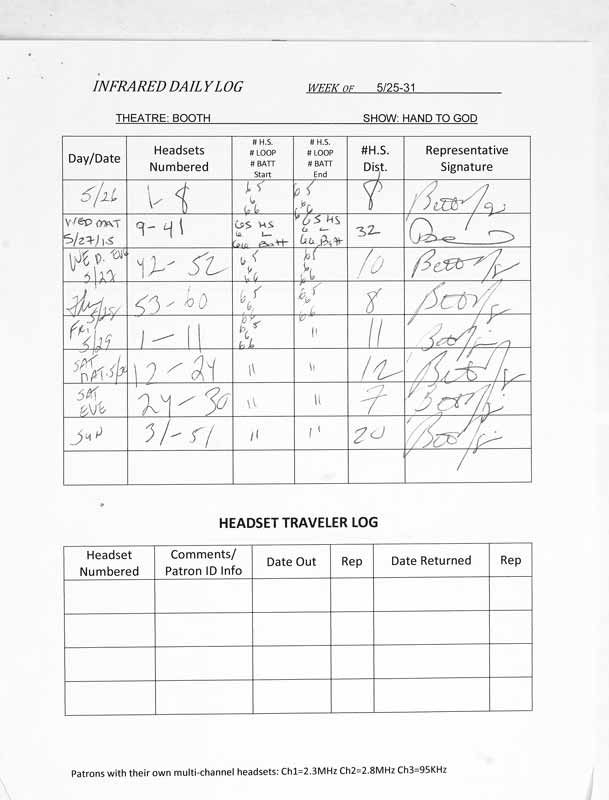 INFRARED DAILY LOG WEEK OF 5/25-31
THEATRE: BOOTH SHOW: HAND TO GOD
Day/Date
Headsets
Numbered
# H.S.
# LOOP
# BATT
Start
# H.S.
# LOOP
# BATT
End
#H.S.
Dist.
Representative
Signature
5/26 1-8 65 6 66 65 6 66 8
WED MAT
5/27/15
9-41
65 HS
6 L
66 Batt
65 HS
6 L
66 Batt
32
WED. EVE
5/27
42-52 65 6 66 65 6 66 10
Thu
5/28
53-60 65 6 66 65 6 66 8
FRI
5/29
1-11 65 6 66 " 11
SAT
MAT 5/30
12-24 " " 12
SAT
EVE
24-30 " " 7
SUN 31-51 " " 20
HEADSET TRAVELER LOG
Headset
Numbered
Comments/
Patron ID Info
Date Out
Rep
Date Returned
Rep
Patrons with their own multi-channel headsets: Ch1=2.3MHz Ch2=2.8MHz Ch3=95KHz